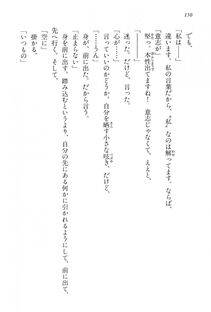 150
でも。
「私は──」
違います。私の言葉だから、ってなるのは解ってます。ならば、
「意志が──」
あっ、本性出てますね! 意志じゃなくて、ええと、
迷った。だけど、
「心が……」
言っていいのかどうか。自分を晒す小さな呟き。けど、
「とまらん」
身が、前に出た。だから言う。
「止まらない」
身を前に出す。踏み込むというより、自分の先にある何かに引かれるようにして、前に出て、
先へ行く。そして、
「空に」
掛かる。
「いつもの」